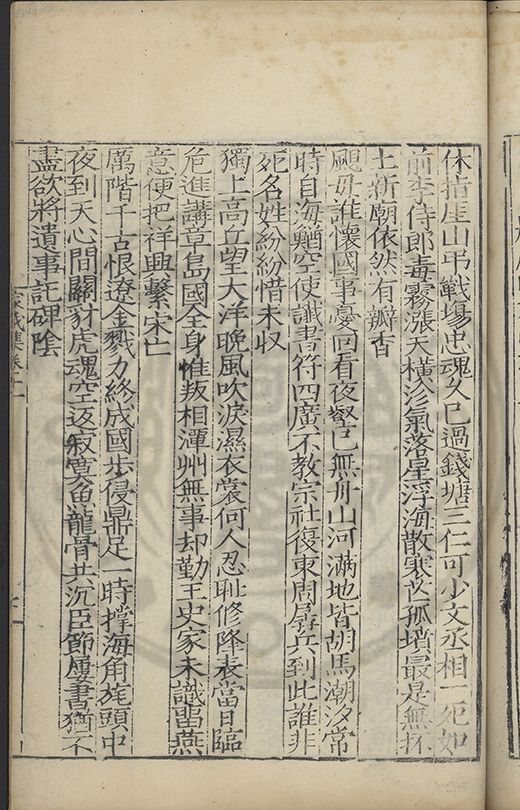 休指厓山弔戰塲忠魂久已過錢塘三仁可少文丞相一死如
前李侍郎毒霧漲天橫沴氣落星浮海散寒芒孤墳最是無抔
土新廟依然有瓣香
颶毋誰懷國事憂回看夜壑已無舟山河滿地皆胡馬潮汐常
時自海鰌空使讖書符四廣不教宗社復東周孱兵到此誰非
死名姓紛紛惜未收
獨上高丘望大洋晚風吹淚濕衣裳何人忍耻修降表當日臨
危進講章島國全身惟叛相渾州無事却勤王史家未識留燕
意便把祥興繫宋亡
厲階千古恨遼金戮力終成國步侵鼎足一時撑海角旄頭中
夜到天心間關豺虎魂空返寂寞魚龍骨共沉臣節屢書猶不
盡欲將遺事託碑陰